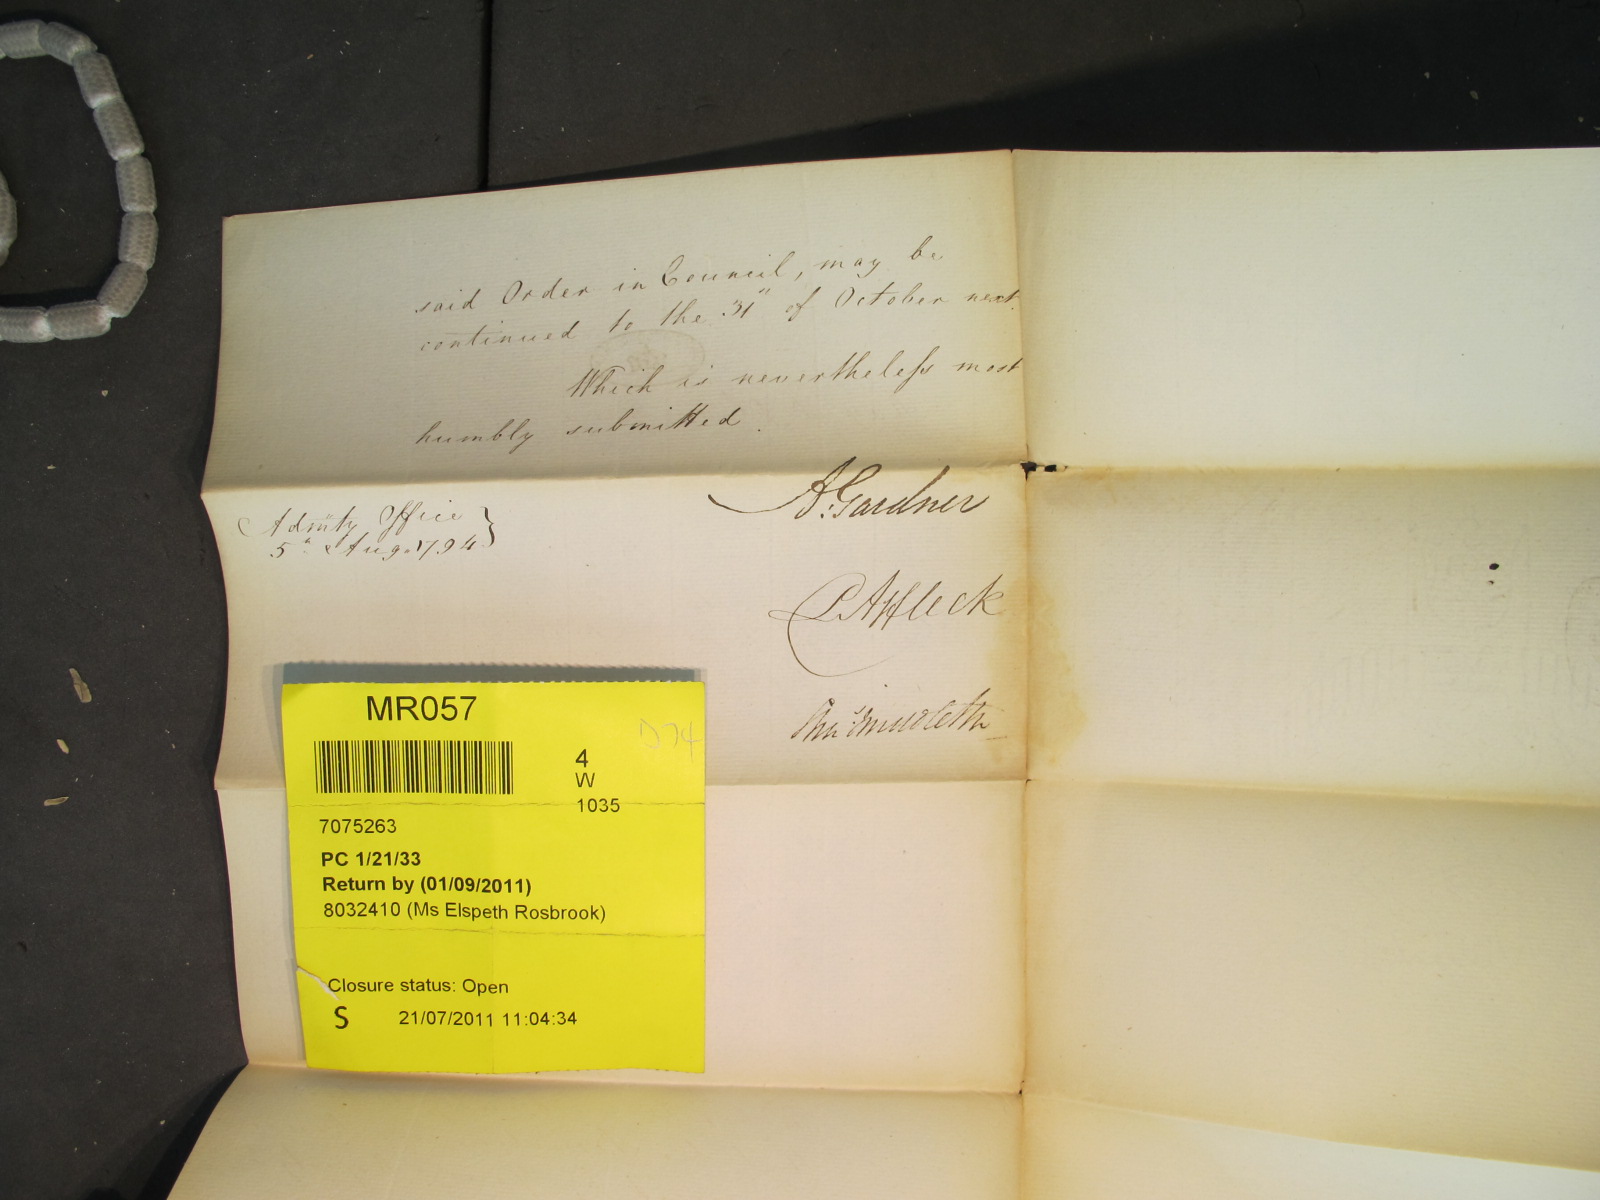 said Order in Council, may be
continued to the 31st of October next.
Which is nevertheless most
humbly submitted.
A: Gardner
Admlty Office
5th Aug. 1794
P Affleck
Chas: Middleton
MR057
D74
4
W
1035
7075263
PC 1/21/33
Return by (01/09/2011)
8032410 (Ms Elspeth Rosbrook)
Closure status: Open
S 21/07/2011 11:04:34